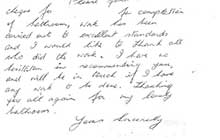 Please
cheque for for completion
of bathroom, work has been
carried out to excellent standards
and I would like to thank all
who did the work. I have no
hesitation in recommending you,
and will be in touch if I have
any work to be done. Thanking
you all again for my lovely
bathroom.
Yours Sincerely